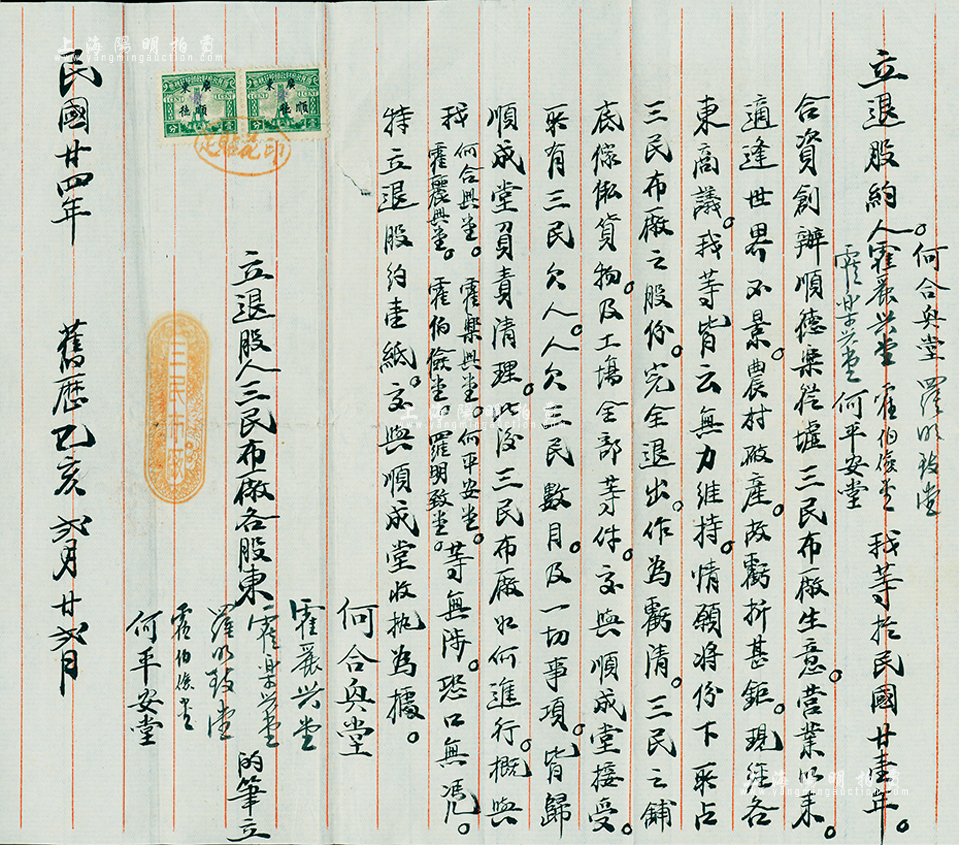 立退股約人。何合興堂 羅明致堂 霍麗兴堂 霍伯儉堂 霍樂兴堂 何平安堂 我等於民國廿壹年。
合資創辦順德樂從墟三民布廠生意。營業以來。
適逢世界不景。農村破產。故虧折甚鉅。現經各
東商議。我等皆云無力維持。情願将份下所占
三民布廠之股份。完全退出。作為虧清。三民之鋪
底傢俬貨物。及工塲全部等件。交與順成堂接受。
所有三民欠人。人欠三民數目。及一切事項。皆歸
順成堂負責清理。此後三民布廠如何進行。概與
我何合興堂。霍樂興堂。何平安堂。霍麗興堂。霍伯儉堂。羅明致堂。等無涉。恐口無馮。
特立退股約壹紙。交與順成堂收执為據。
何合興堂
霍麗兴堂
立退股人三民布廠各股東 霍樂兴堂 的筆立
羅明致堂
霍伯儉堂
何平安堂
民國廿四年 舊歷乙亥 六月廿六日
廣東
順德
1 CENT
壹分
廣東
順德
1 CENT
壹分
印花貼足
三民布廠
上海陽明拍賣
www.yangmingauction.com
上海陽明拍賣
www.yangmingauction.com
上海陽明拍賣
www.yangmingauction.com